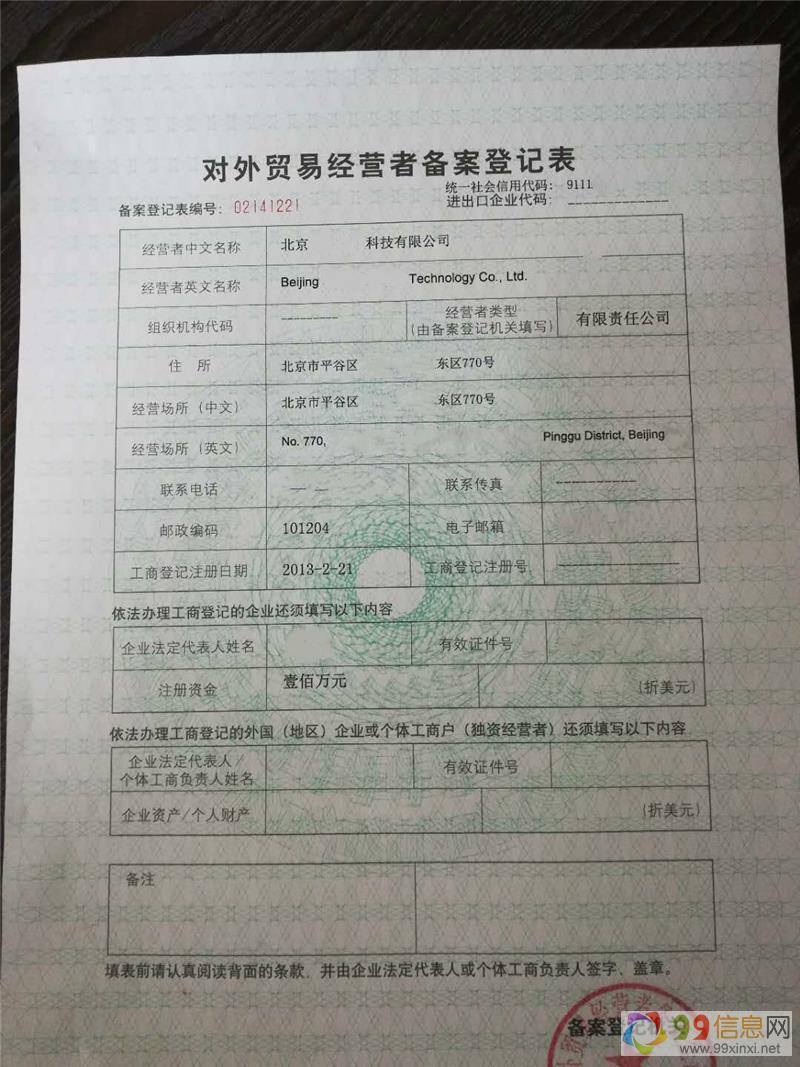 对外贸易经营者备案登记表
统一社会信用代码： 9111
备案登记表编号：02141221 进出口企业代码：
经营者中文名称 北京 科技有限公司
经营者英文名称 Beijing Technology Co., Ltd.
组织机构代码 --------- 经营者类型 (由备案登记机关填写) 有限责任公司
住 所 北京市平谷区 东区770号
经营场所（中文） 北京市平谷区 东区770号
经营场所（英文） No. 770, Pinggu District, Beijing
联系电话 联系传真 ------------
邮政编码 101204 电子邮箱
工商登记注册日期 2013-2-21 工商登记注册号
依法办理工商登记的企业还须填写以下内容
企业法定代表人姓名 有效证件号
注册资金 壹佰万元 (折美元)
依法办理工商登记的外国（地区）企业或个体工商户（独资经营者）还须填写以下内容
企业法定代表人/
个体工商负责人姓名 有效证件号
企业资产/个人财产 (折美元)
备注
填表前请认真阅读背面的条款，并由企业法定代表人或个体工商负责人签字、盖章。
备案登记机关
99信息网
www.99xinxi.net